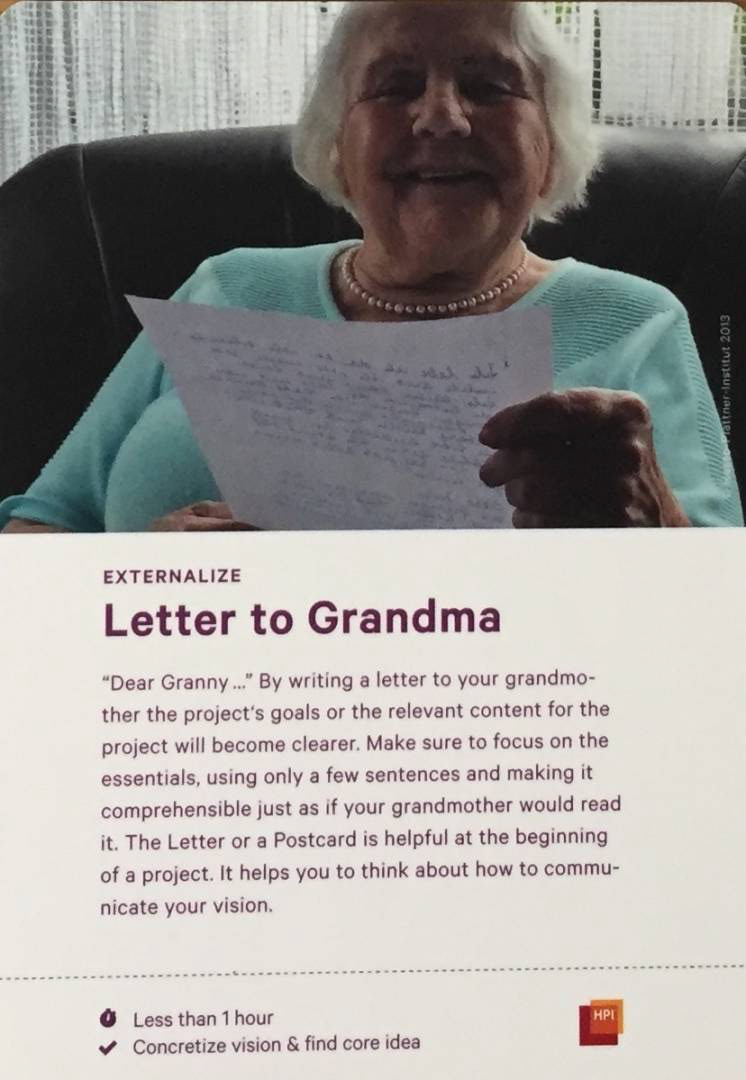 Plattner-Institut 2013
EXTERNALIZE
Letter to Grandma
“Dear Granny ...” By writing a letter to your grandmo-
ther the project's goals or the relevant content for the
project will become clearer. Make sure to focus on the
essentials, using only a few sentences and making it
comprehensible just as if your grandmother would read
it. The Letter or a Postcard is helpful at the beginning
of a project. It helps you to think about how to commu-
nicate your vision.
Less than 1 hour
Concretize vision & find core idea
HPI